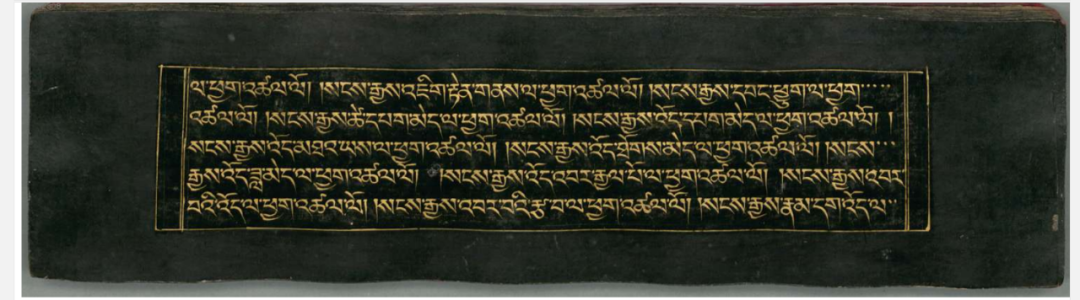 ལ་ཕྱག་འཚལ་ལོ། །སངས་རྒྱས་འཇིག་རྟེན་གནས་ལ་ཕྱག་འཚལ་ལོ། །སངས་རྒྱས་དབང་ཕྱུག་ལ་ཕྱག་་་་་
འཚལ་ལོ། །སངས་རྒྱས་ཚེ་དཔག་མེད་ལ་ཕྱག་འཚལ་ལོ། །སངས་རྒྱས་འོད་དཔག་མེད་ལ་ཕྱག་འཚལ་ལོ། །
སངས་རྒྱས་འོད་མཐའ་ཡས་ལ་ཕྱག་འཚལ་ལོ། །སངས་རྒྱས་འོད་ཐོགས་མེད་ལ་ཕྱག་འཚལ་ལོ། །སངས་་་
རྒྱས་འོད་ཟླ་མེད་ལ་ཕྱག་འཚལ་ལོ། །སངས་རྒྱས་འོད་འབར་རྒྱལ་པོ་ལ་ཕྱག་འཚལ་ལོ། །སངས་རྒྱས་འབར་
བའི་འོད་ལ་ཕྱག་འཚལ་ལོ། །སངས་རྒྱས་འབར་བའི་རྩ་བ་ལ་ཕྱག་འཚལ་ལོ། །སངས་རྒྱས་རྣམ་དག་འོད་ལ་་